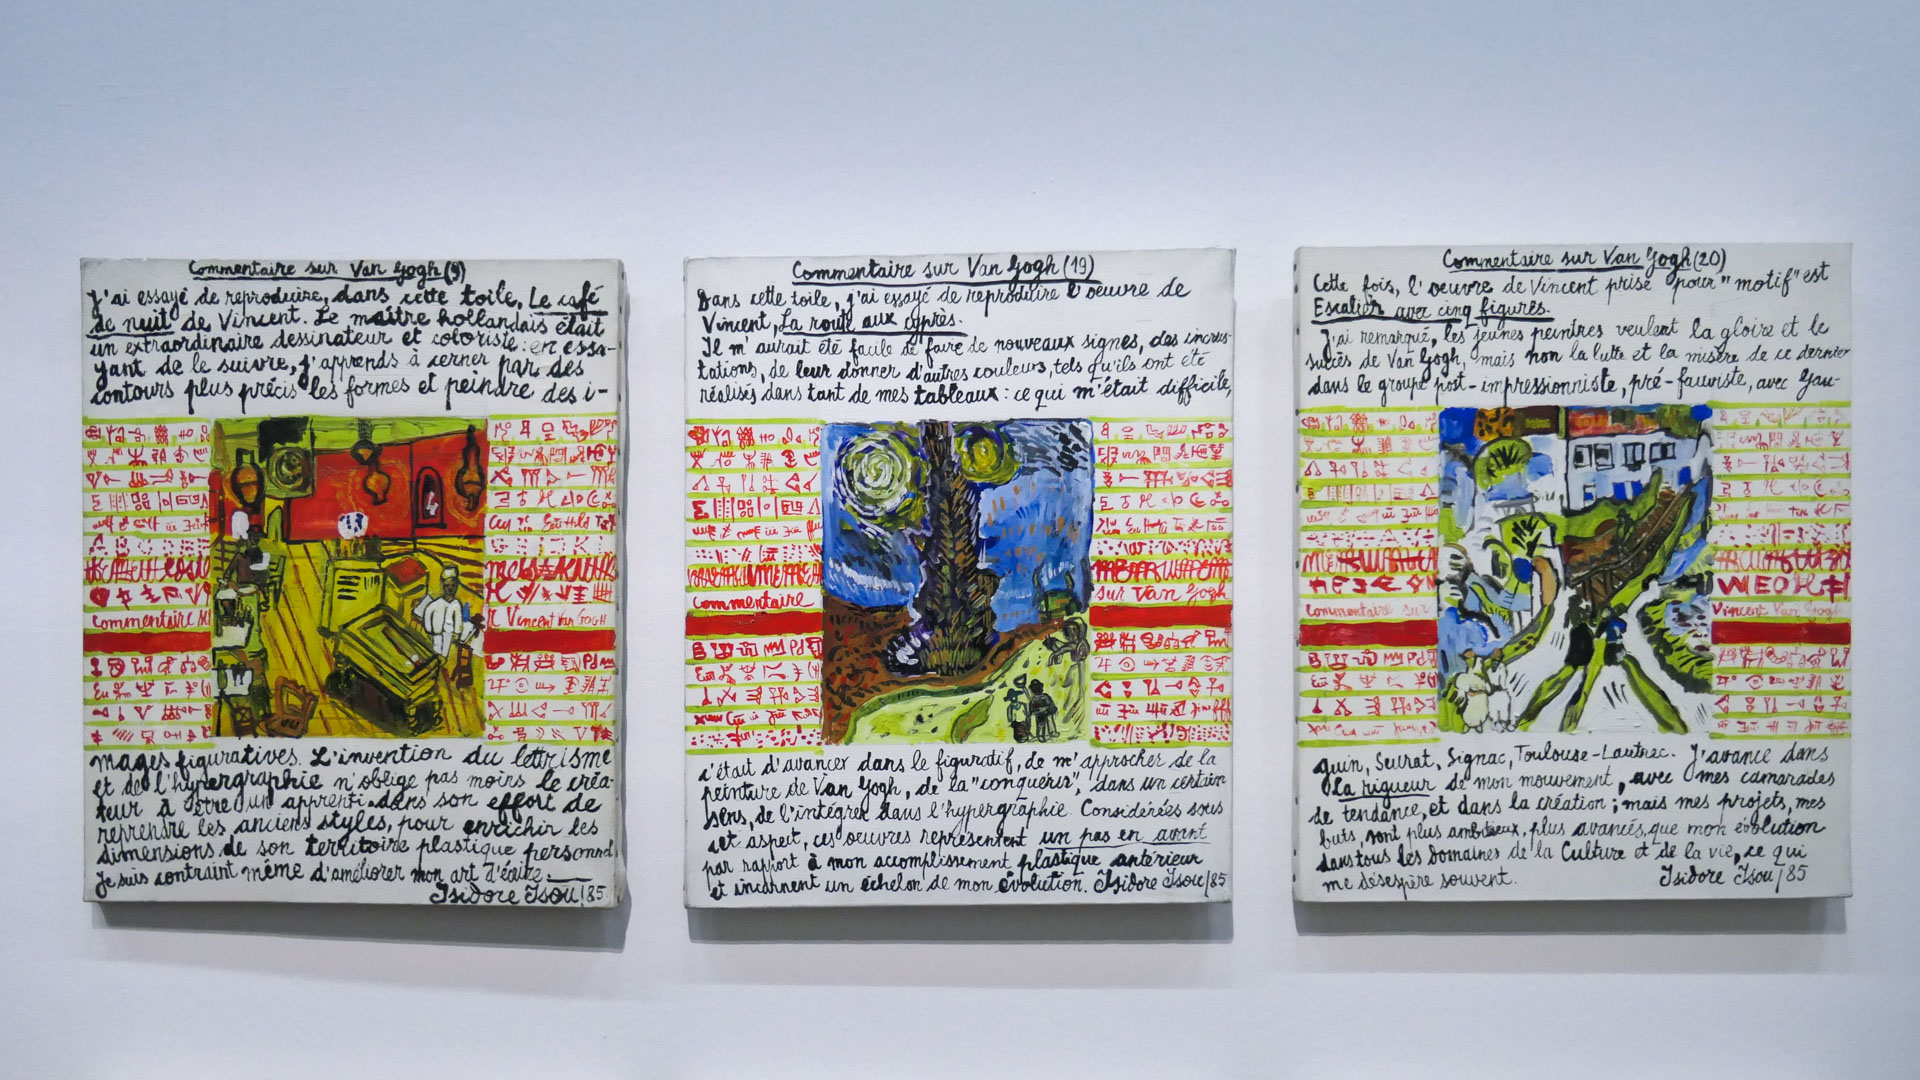 Commentaire sur Van Gogh (9)
J'ai essayé de reproduire, dans cette toile, Le café
de nuit de Vincent. Le maître hollandais était
un extraordinaire dessinateur et coloriste: en essa-
yant de le suivre, j'apprends à cerner par des
contours plus précis les formes et peindre des i-
commentaire
Vincent Van GOGH
mages figuratives. L'invention du lettrisme
et de l'hypergraphie n'oblige pas moins le créa-
teur à être un apprenti dans son effort de
reprendre les anciens styles, pour enrichir les
dimensions de son territoire plastique personnel
Je suis contraint même d'améliorer mon art d'écrire.
Isidore Isou/85
Commentaire sur Van Gogh (19)
Dans cette toile, j'ai essayé de reproduire l'oeuvre de
Vincent, La route aux cyprès.
Il m'aurait été facile de faire de nouveaux signes, des incrus-
tations, de leur donner d'autres couleurs, tels qu'ils ont été
réalisés dans tant de mes tableaux: ce qui m'était difficile,
commentaire
sur Van Gogh
c'était d'avancer dans le figuratif, de m'approcher de la
peinture de Van Gogh, de la "conquérir", dans un certain
sens, de l'intégrer dans l'hypergraphie. Considérées sous
cet aspect, ces oeuvres représentent un pas en avant
par rapport à mon accomplissement plastique antérieur
et incarnent un échelon de mon évolution. Isidore Isou/85
Commentaire sur Van Gogh (20)
Cette fois, l'oeuvre de Vincent prise pour "motif" est
Escalier avec cinq figures.
J'ai remarqué, les jeunes peintres veulent la gloire et le
succès de Van Gogh, mais non la lutte et la misère de ce dernier
dans le groupe post-impressionniste, pré-fauviste, avec Gau-
commentaire sur
Vincent Van Gogh
guin, Seurat, Signac, Toulouse-Lautrec. J'avance dans
la rigueur de mon mouvement, avec mes camarades
de tendance, et dans la création; mais mes projets, mes
buts, sont plus ambitieux, plus avancés, que mon évolution
dans tous les domaines de la Culture et de la vie, ce qui
me désespère souvent. Isidore Isou/85